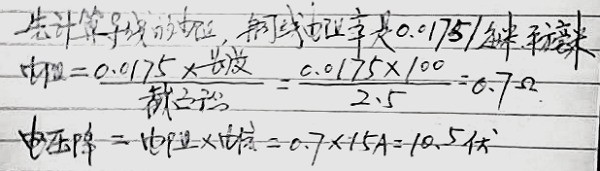 先计算导线的电阻,铜线电阻率是0.0175/每米平方毫米
电阻=0.0175×长度/截面积=0.0175×100/2.5=0.7Ω
电压降=电阻×电流=0.7×15A=10.5伏